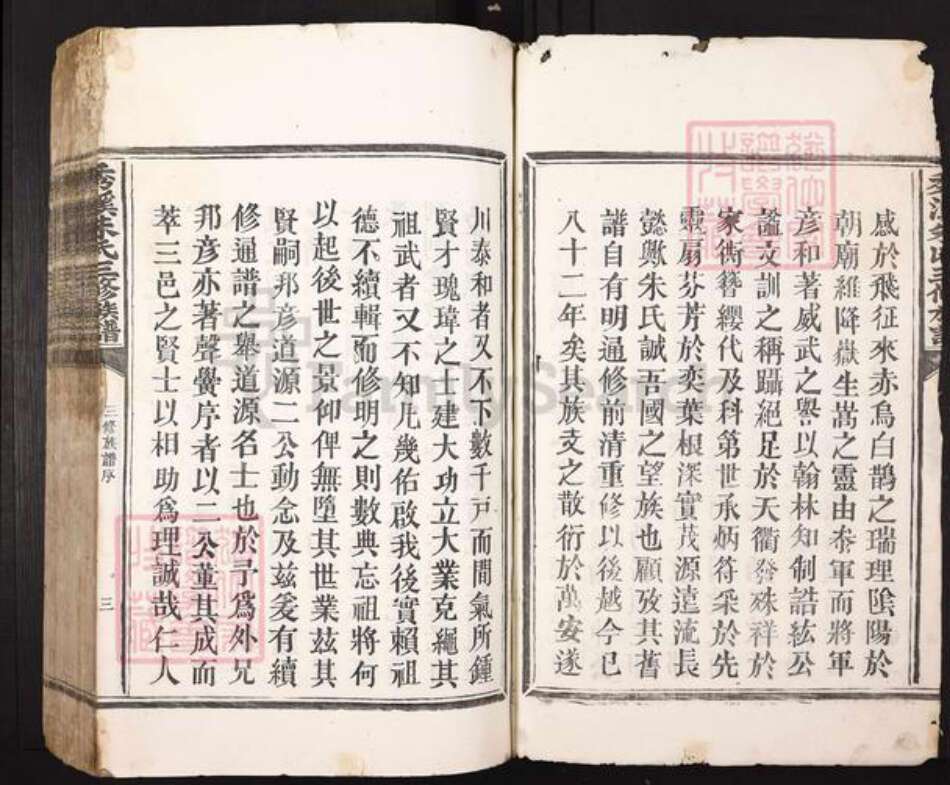 感於飛征來赤烏白鵲之瑞理陰陽於
朝廟維降嶽生嵩之靈由叅軍而將軍
彥和著威武之譽以翰林知制誥紘公
謐文訓之稱躡絕足於天衢發殊祥於
家衖簪纓代及科第世承炳符采於先
靈扇芬芳於奕葉根深實茂源遠流長
懿歟朱氏誠吾國之望族也顧攷其舊
譜自有明通修前清重修以後越今已
八十二年矣其族支之散衍於萬安遂
川泰和者又不下數千戸而間氣所鍾
賢才瑰瑋之士建大功立大業克繩其
祖武者又不知凡幾佑啟我後實賴祖
德不續輯而修明之則數典忘祖將何
以起後世之景仰俾無墮其世業玆其
賢嗣邦彥道源二公動念及玆爰有續
修通譜之舉道源名士也於予爲外兄
邦彥亦著聲黌序者以二公董其成而
萃三邑之賢士以相助爲理誠哉仁人
秀溪朱氏三修族譜
三修族譜序
三
FamilySearch